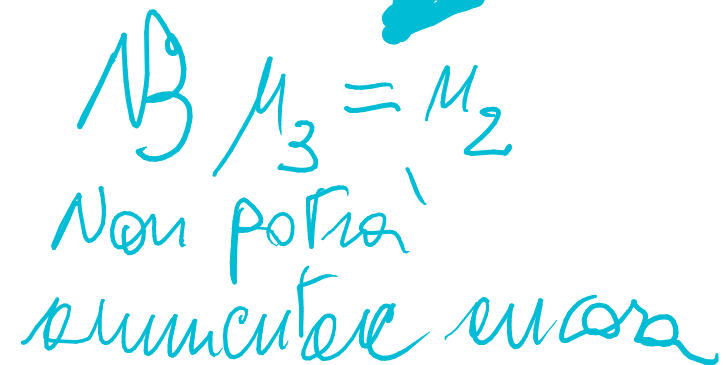 NB μ₃ = μ₂
Non potrà
aumentare ancora